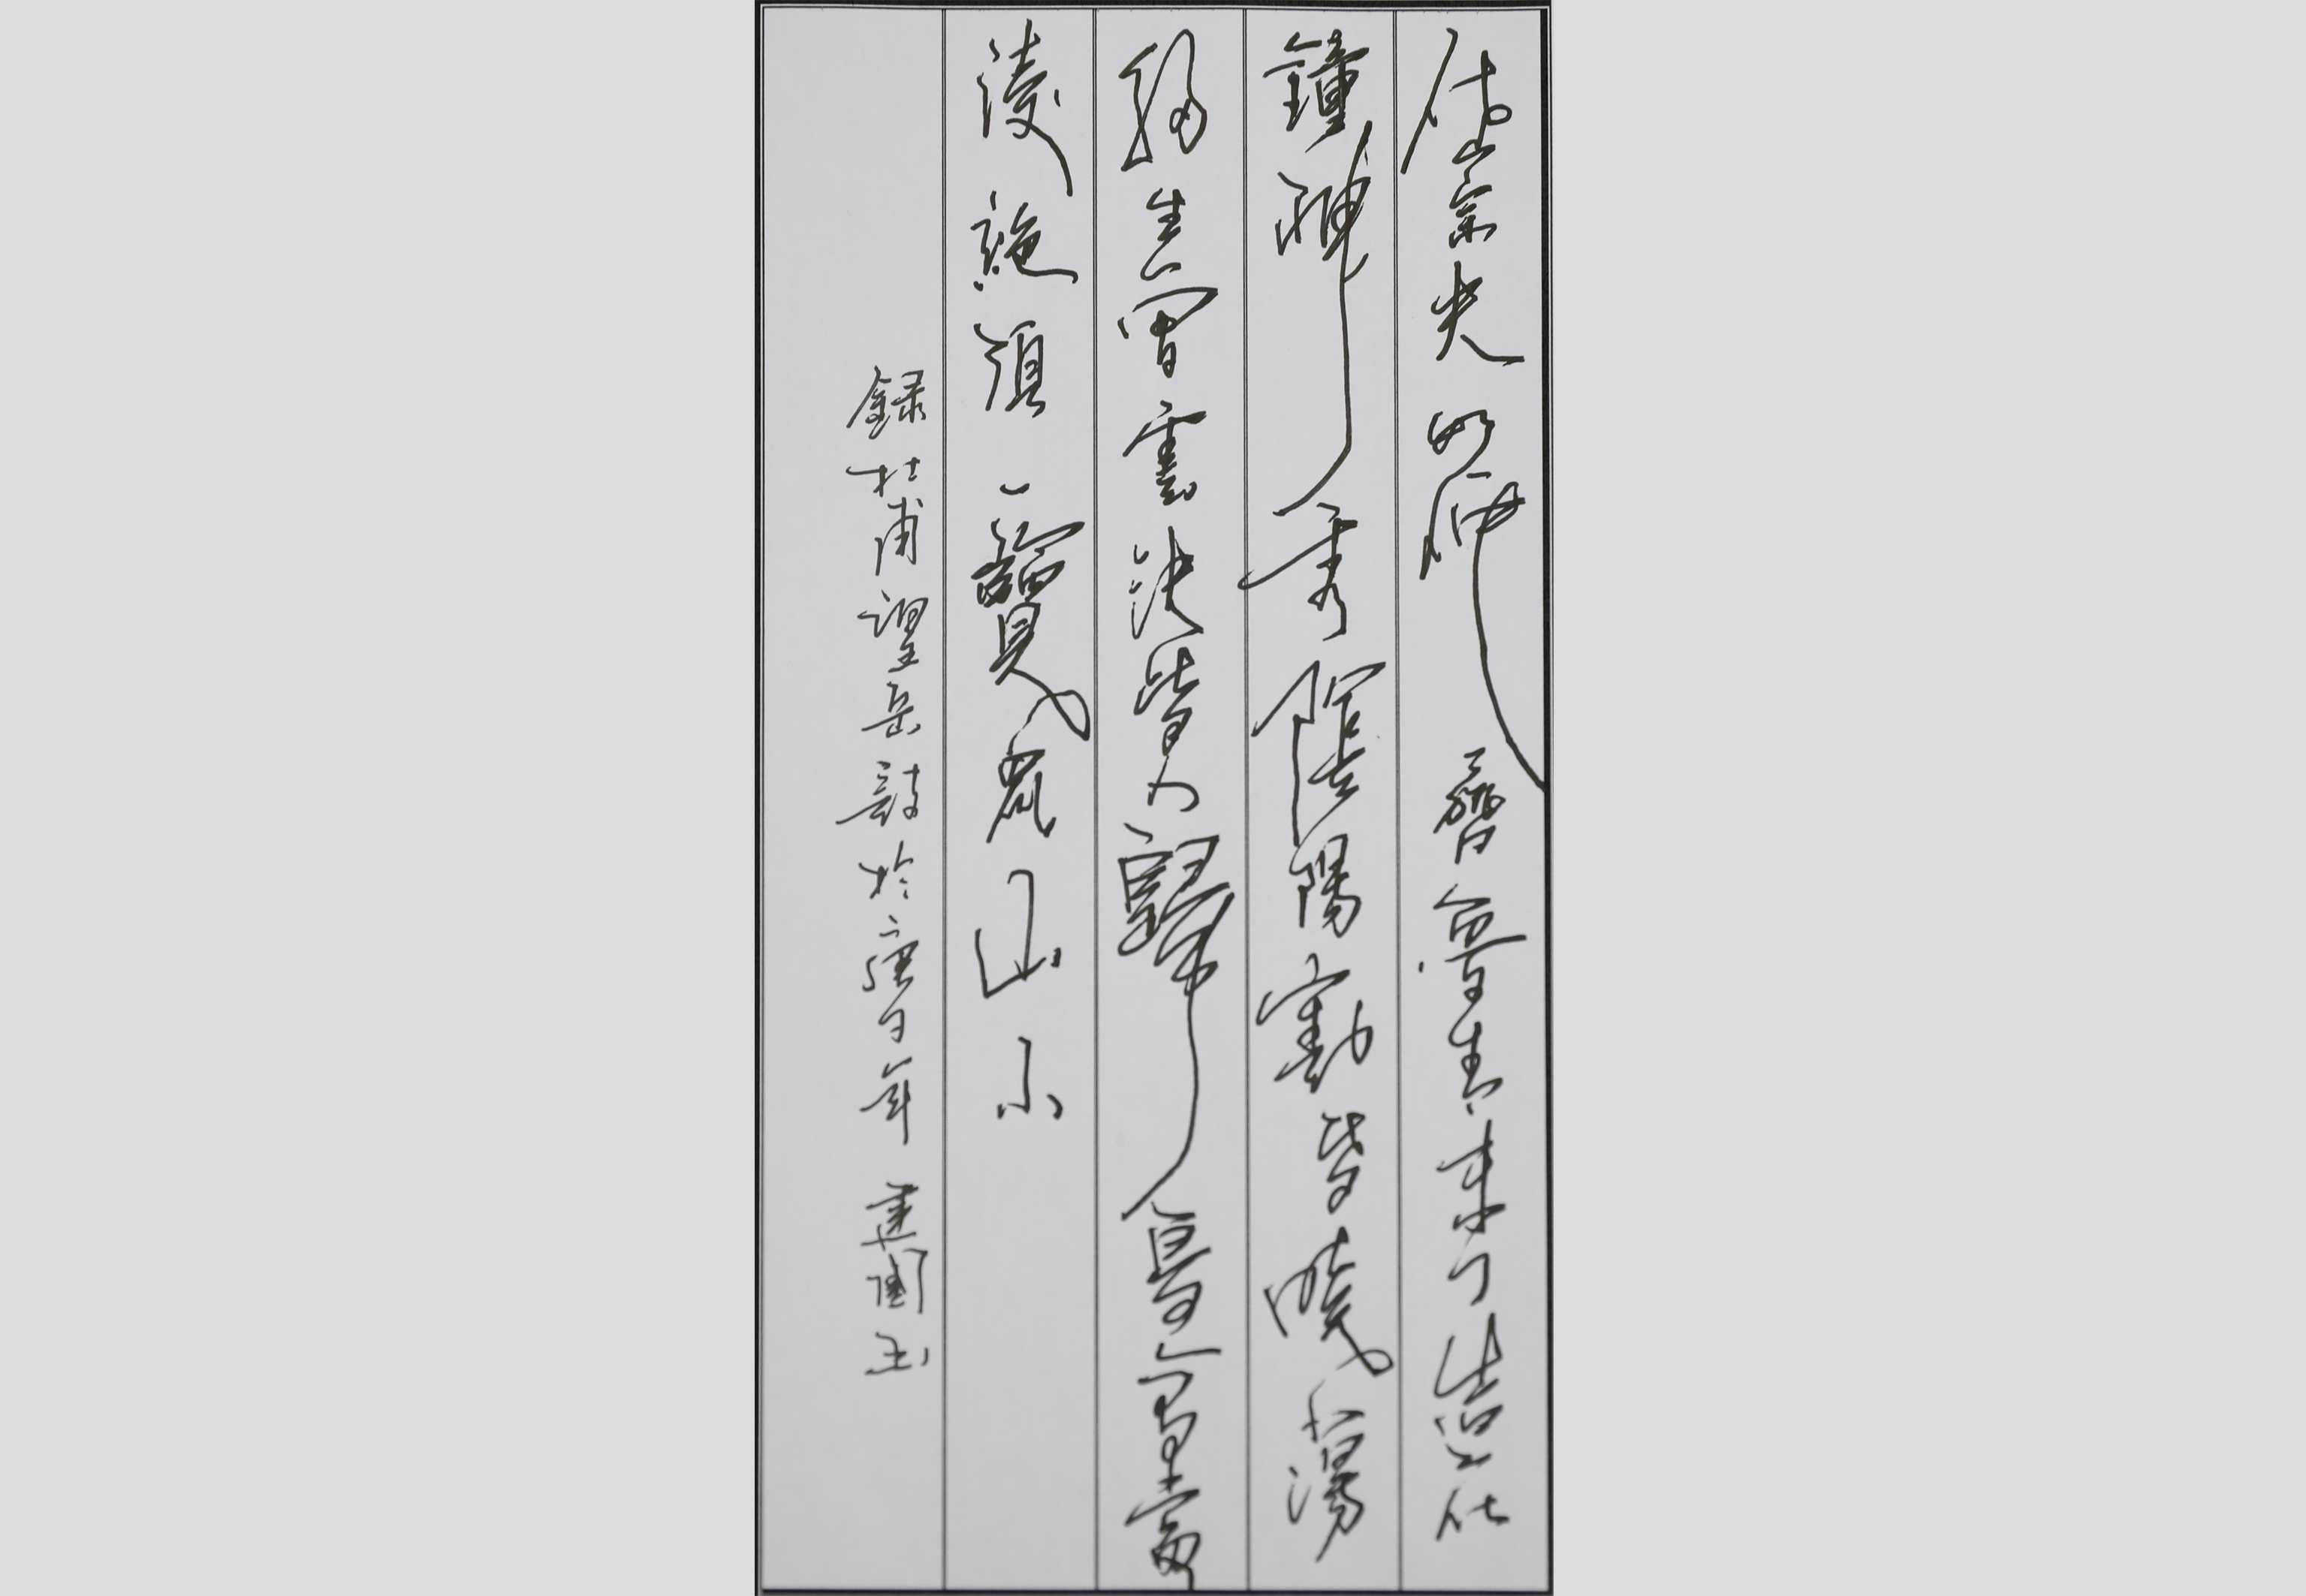 岱宗夫如何齊魯青未了造化
鐘神秀陰陽割昏曉蕩
胸生曾雲決眥入歸鳥會當
凌絕頂一覽衆山小
錄杜甫望岳詩於年建國